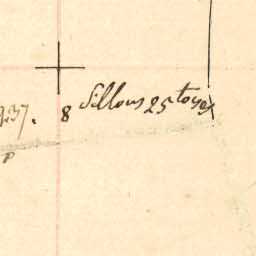 937. 8 Sillons 25 toises
P